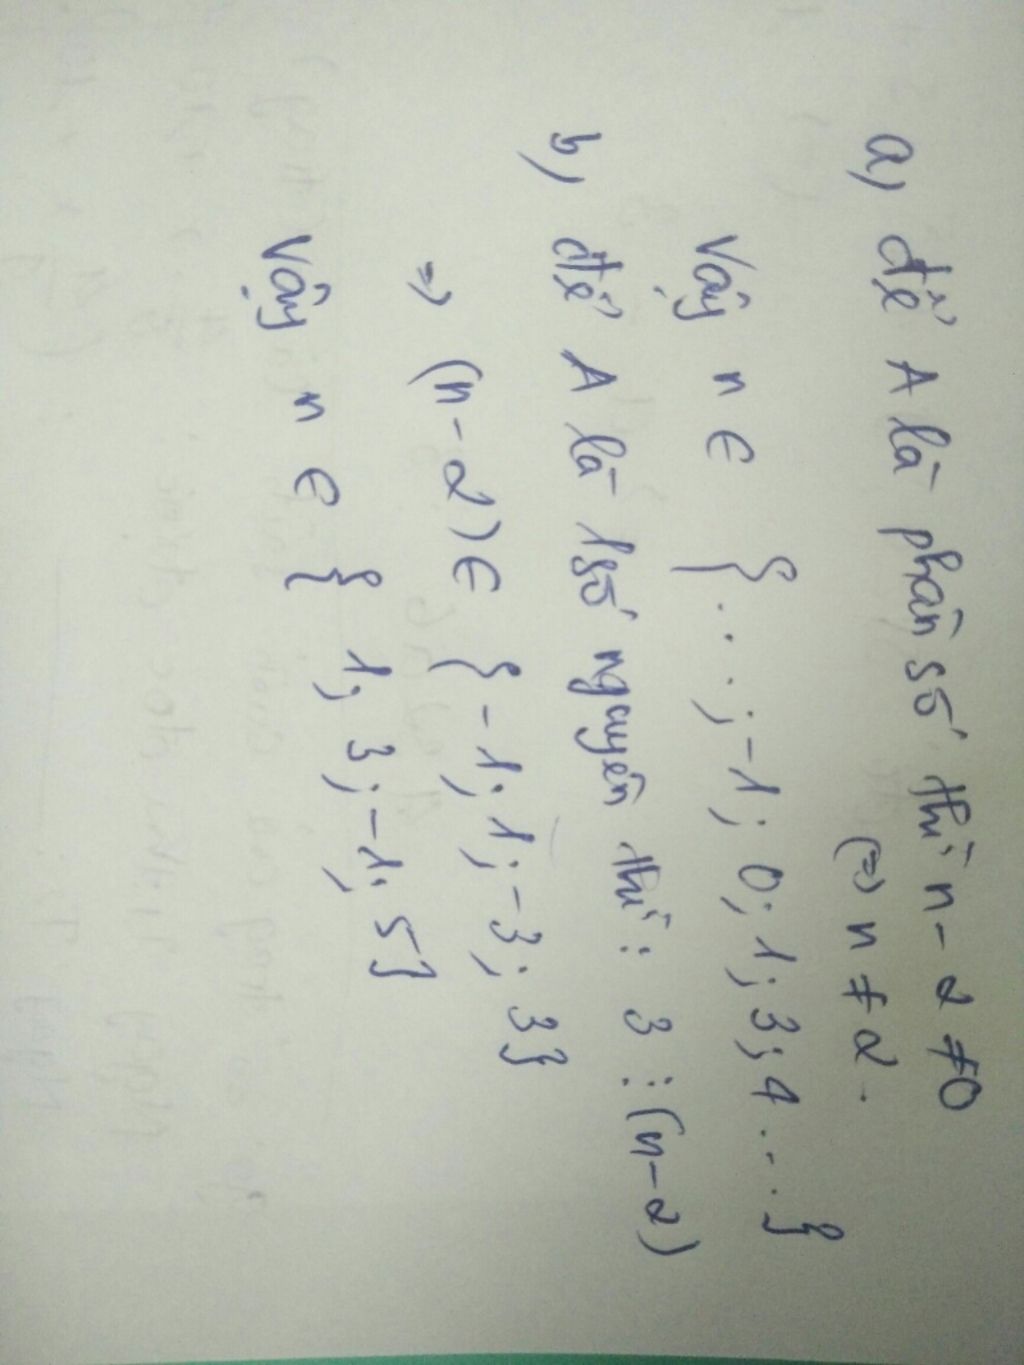 a, để A là phân số thì n-2 ≠0
(=) n ≠ 2.
Vậy n ∈ {...; -1; 0; 1; 3; 4 ...}
b, để A là 1 số nguyên thì: 3 ⋮ (n-2)
=> (n-2) ∈ {-1; 1; -3; 3}
Vậy n ∈ {1; 3; -1; 5}